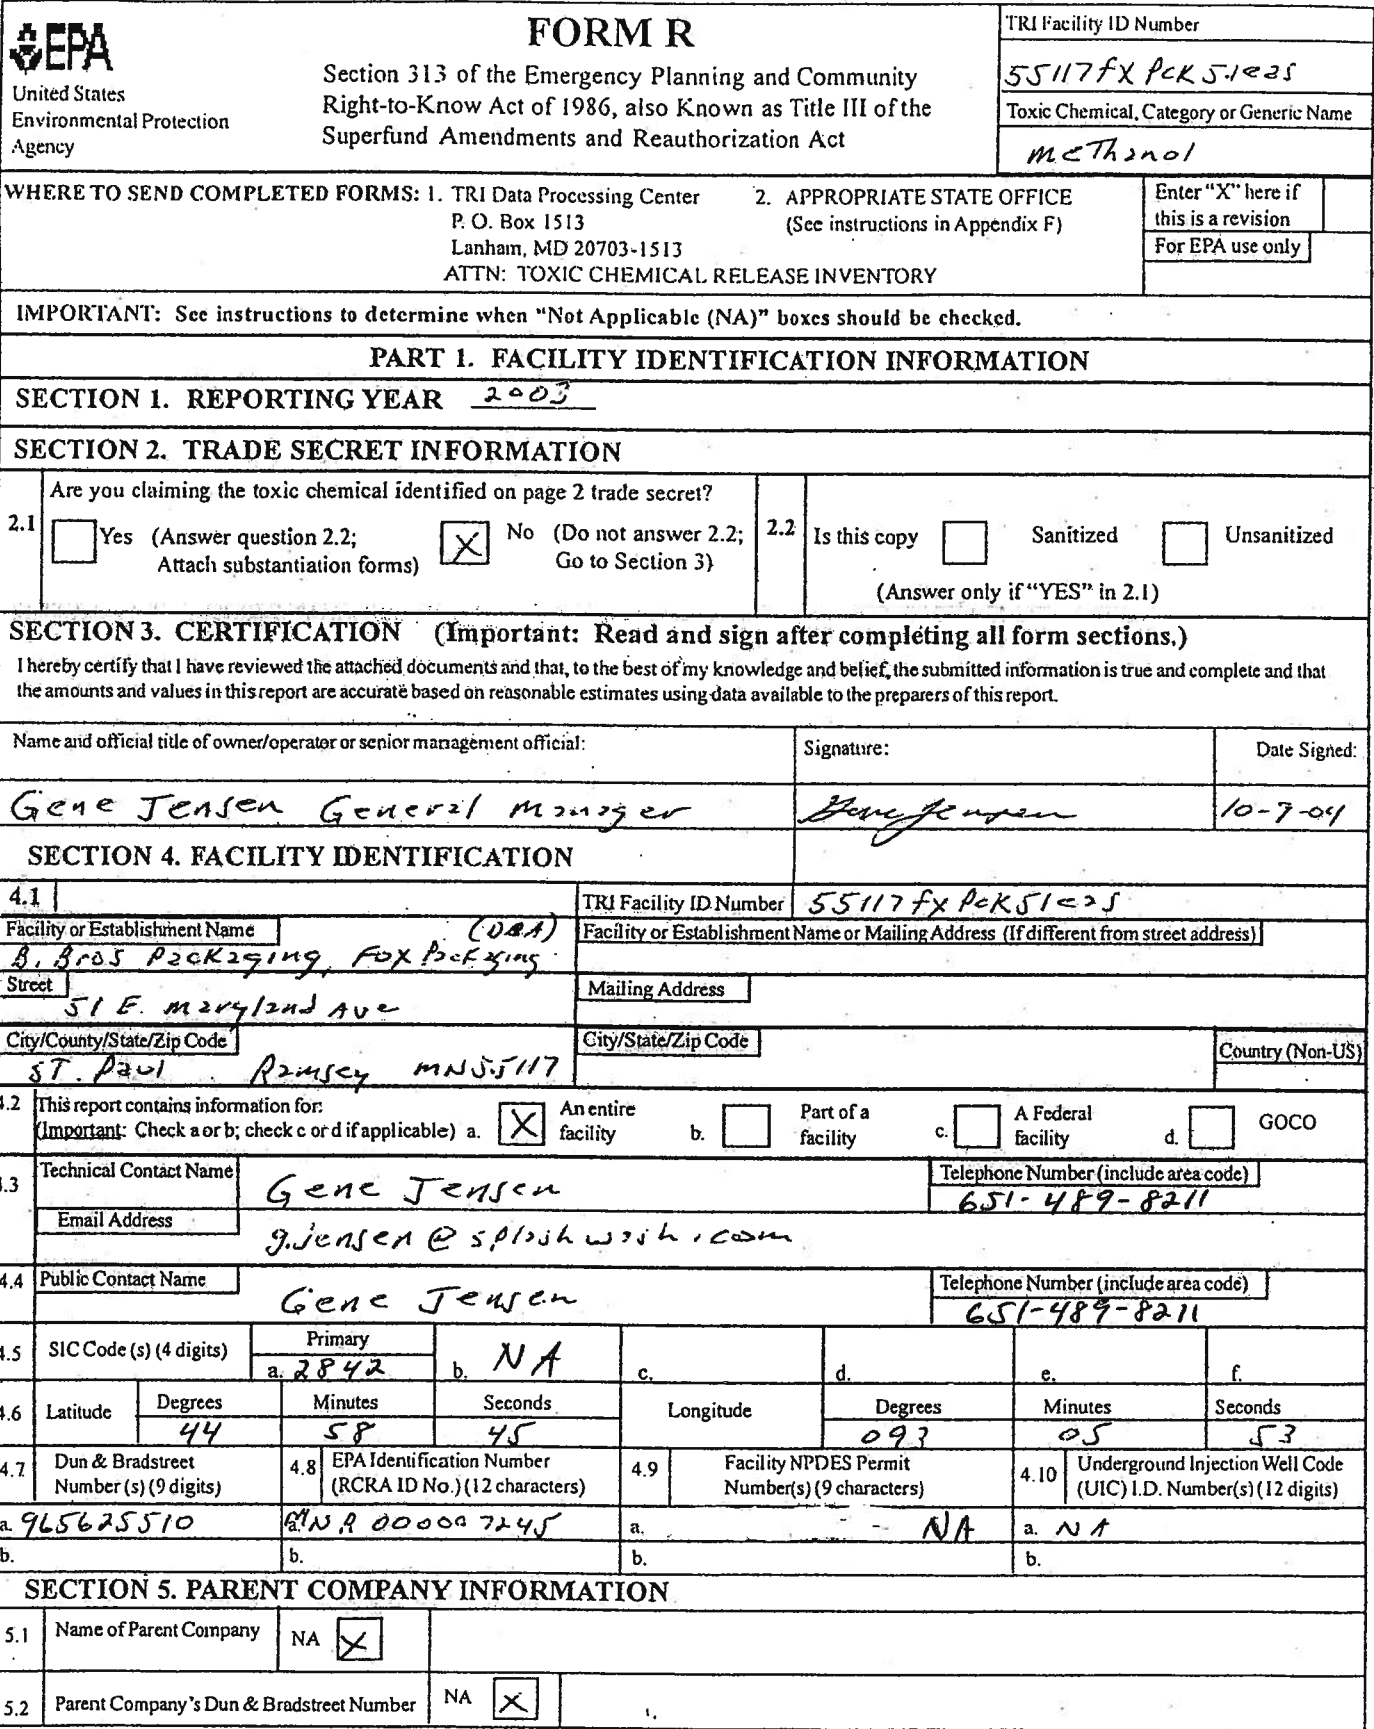 EPA
United States
Environmental Protection
Agency
FORM R
Section 313 of the Emergency Planning and Community
Right-to-Know Act of 1986, also Known as Title III of the
Superfund Amendments and Reauthorization Act
TRI Facility ID Number
55117FXPCK51EAS
Toxic Chemical, Category or Generic Name
Methanol
WHERE TO SEND COMPLETED FORMS: 1. TRI Data Processing Center
P. O. Box 1513
Lanham, MD 20703-1513
ATTN: TOXIC CHEMICAL RELEASE INVENTORY
2. APPROPRIATE STATE OFFICE
(See instructions in Appendix F)
Enter "X" here if
this is a revision
For EPA use only
IMPORTANT: See instructions to determine when "Not Applicable (NA)" boxes should be checked.
PART 1. FACILITY IDENTIFICATION INFORMATION
SECTION 1. REPORTING YEAR 2003
SECTION 2. TRADE SECRET INFORMATION
2.1
Are you claiming the toxic chemical identified on page 2 trade secret?
Yes (Answer question 2.2;
Attach substantiation forms)
X No (Do not answer 2.2;
Go to Section 3)
2.2 Is this copy Sanitized Unsanitized
(Answer only if "YES" in 2.1)
SECTION 3. CERTIFICATION (Important: Read and sign after completing all form sections.)
I hereby certify that I have reviewed the attached documents and that, to the best of my knowledge and belief, the submitted information is true and complete and that
the amounts and values in this report are accurate based on reasonable estimates using data available to the preparers of this report.
Name and official title of owner/operator or senior management official:
Signature:
Date Signed:
Gene Jensen General Manager
Gene Jensen
10-7-04
SECTION 4. FACILITY IDENTIFICATION
4.1
TRI Facility ID Number 55117FXPCK51EAS
Facility or Establishment Name
(DBA)
B. Bros Packaging, Fox Packaging
Facility or Establishment Name or Mailing Address (If different from street address)
Street
51 E. Maryland Ave
Mailing Address
City/County/State/Zip Code
ST. Paul Ramsey MN 55117
City/State/Zip Code
Country (Non-US)
4.2 This report contains information for:
(Important: Check a or b; check c or d if applicable) a. X An entire
facility
b. Part of a
facility
c. A Federal
facility
d. GOCO
4.3 Technical Contact Name
Gene Jensen
Telephone Number (include area code)
651-489-8211
Email Address
g.jensen@splashwash.com
4.4 Public Contact Name
Gene Jensen
Telephone Number (include area code)
651-489-8211
4.5 SIC Code (s) (4 digits)
Primary
a. 2842
b. NA
c.
d.
e.
f.
4.6 Latitude
Degrees
44
Minutes
58
Seconds
45
Longitude
Degrees
093
Minutes
05
Seconds
53
4.7 Dun & Bradstreet
Number (s) (9 digits)
4.8 EPA Identification Number
(RCRA ID No.) (12 characters)
4.9 Facility NPDES Permit
Number(s) (9 characters)
4.10 Underground Injection Well Code
(UIC) I.D. Number(s) (12 digits)
a. 965625510
a. MNR 000007245
a. NA
a. NA
b.
b.
b.
b.
SECTION 5. PARENT COMPANY INFORMATION
5.1 Name of Parent Company NA X
5.2 Parent Company's Dun & Bradstreet Number NA X